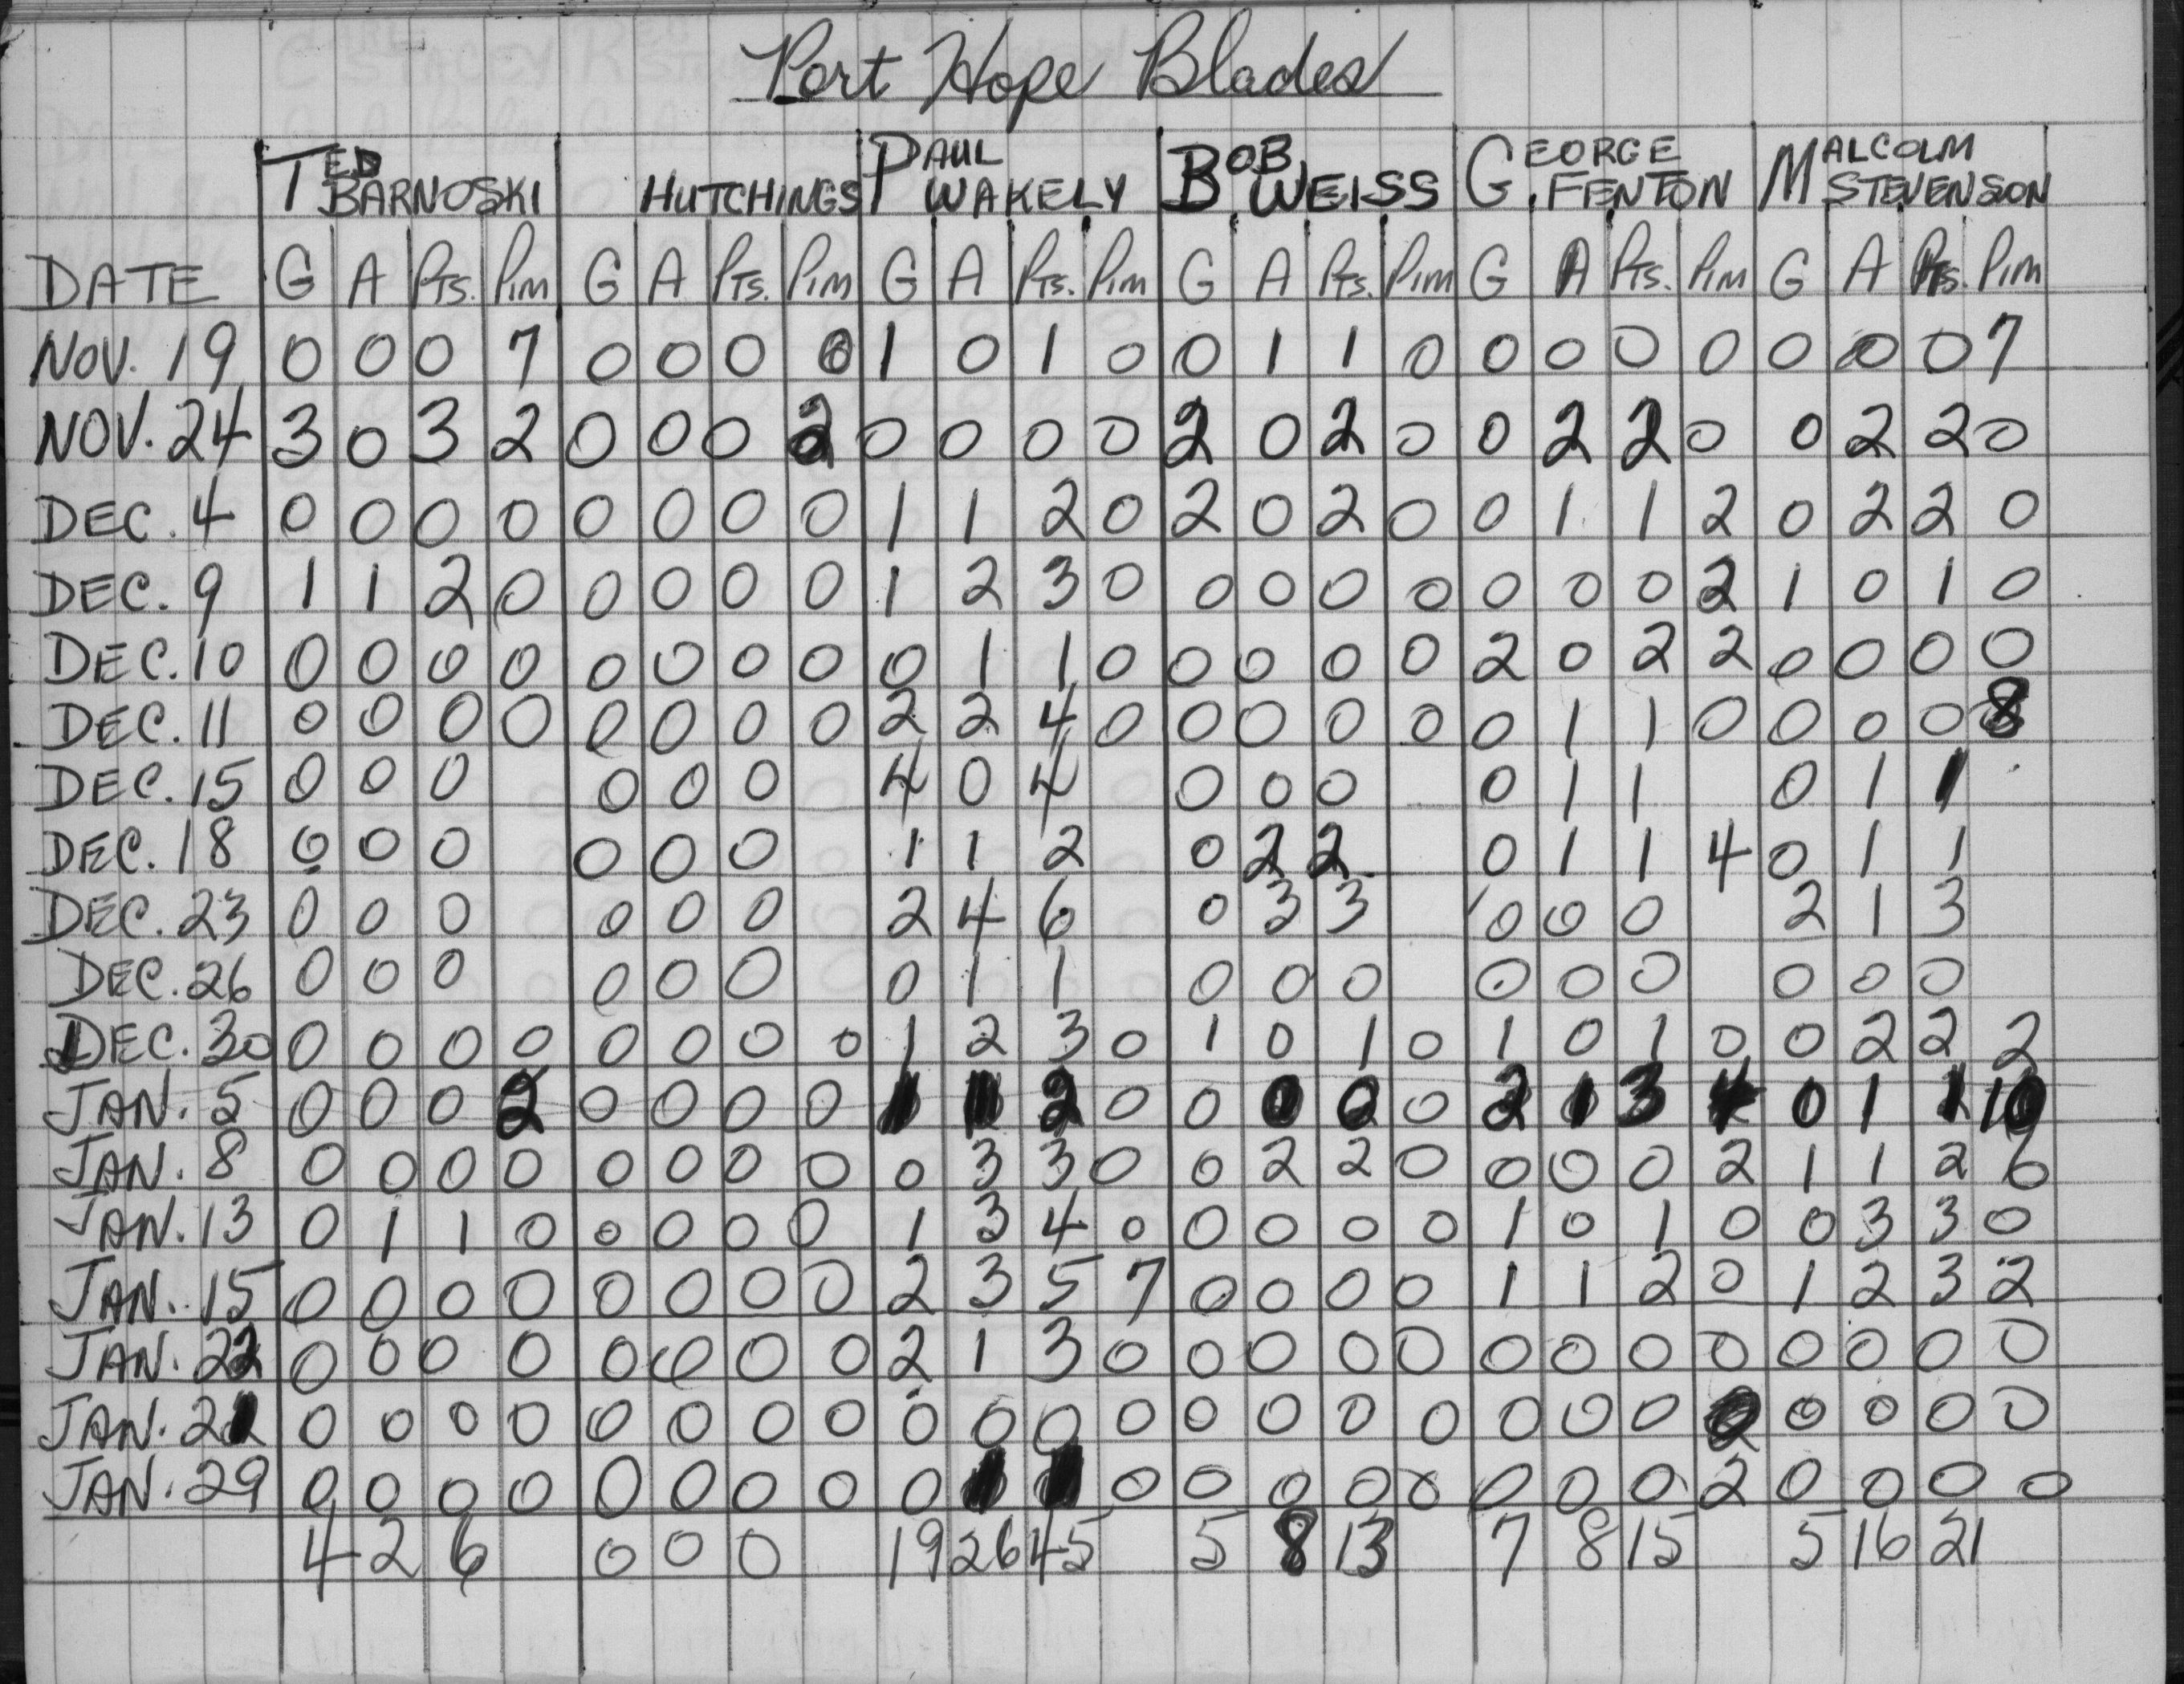 Port Hope Blades
TED BARNOSKI HUTCHINGS PAUL WAKELY BOB WEISS GEORGE FENTON MALCOLM STEVENSON
DATE G A Pts. Pim G A Pts. Pim G A Pts. Pim G A Pts. Pim G A Pts. Pim G A Pts. Pim
NOV. 19 0 0 0 7 0 0 0 0 1 0 1 0 0 1 1 0 0 0 0 0 0 0 0 7
NOV. 24 3 0 3 2 0 0 0 2 0 0 0 0 2 0 2 0 0 2 2 0 0 2 2 0
DEC. 4 0 0 0 0 0 0 0 0 1 1 2 0 2 0 2 0 0 1 1 2 0 2 2 0
DEC. 9 1 1 2 0 0 0 0 0 1 2 3 0 0 0 0 0 0 0 0 2 1 0 1 0
DEC. 10 0 0 0 0 0 0 0 0 0 1 1 0 0 0 0 0 2 0 2 2 0 0 0 0
DEC. 11 0 0 0 0 0 0 0 0 2 2 4 0 0 0 0 0 0 1 1 0 0 0 0 8
DEC. 15 0 0 0 0 0 0 4 0 4 0 0 0 0 1 1 0 1 1
DEC. 18 0 0 0 0 0 0 1 1 2 0 2 2 0 1 1 4 0 1 1
DEC. 23 0 0 0 0 0 0 2 4 6 0 3 3 0 0 0 2 1 3
DEC. 26 0 0 0 0 0 0 0 1 1 0 0 0 0 0 0 0 0 0
DEC. 30 0 0 0 0 0 0 0 0 1 2 3 0 1 0 1 0 1 0 1 0 0 2 2 2
JAN. 5 0 0 0 2 0 0 0 0 1 1 2 0 0 0 0 0 2 1 3 4 0 1 1 10
JAN. 8 0 0 0 0 0 0 0 0 0 3 3 0 0 2 2 0 0 0 0 2 1 1 2 6
JAN. 13 0 1 1 0 0 0 0 0 1 3 4 0 0 0 0 0 1 0 1 0 0 3 3 0
JAN. 15 0 0 0 0 0 0 0 0 2 3 5 7 0 0 0 0 1 1 2 0 1 2 3 2
JAN. 22 0 0 0 0 0 0 0 0 2 1 3 0 0 0 0 0 0 0 0 0 0 0 0 0
JAN. 21 0 0 0 0 0 0 0 0 0 0 0 0 0 0 0 0 0 0 0 2 0 0 0 0
JAN. 29 0 0 0 0 0 0 0 0 0 1 1 0 0 0 0 0 0 0 0 2 0 0 0 0
4 2 6 0 0 0 19 26 45 5 8 13 7 8 15 5 16 21